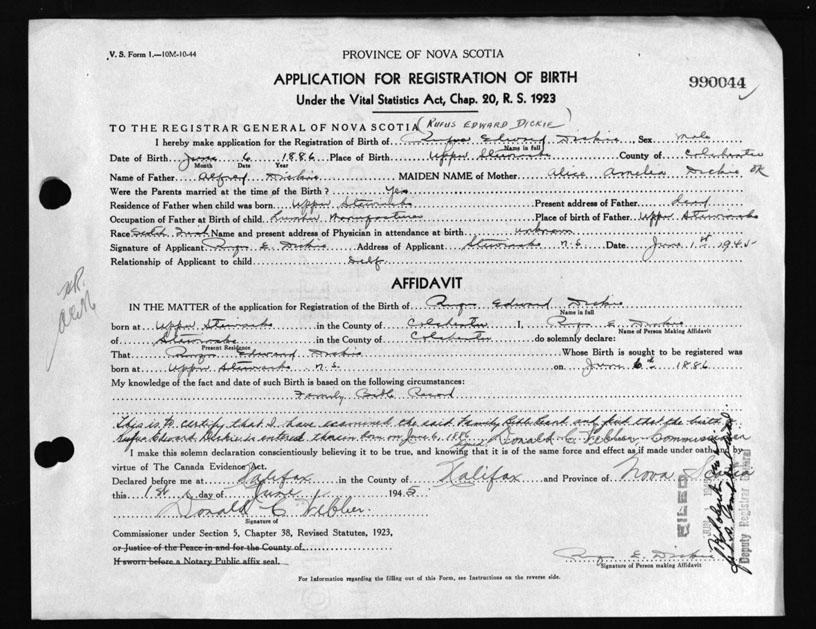 V. S. Form 1.—10M-10-44
PROVINCE OF NOVA SCOTIA
APPLICATION FOR REGISTRATION OF BIRTH
990044
Under the Vital Statistics Act, Chap. 20, R. S. 1923
(RUFUS EDWARD DICKIE)
TO THE REGISTRAR GENERAL OF NOVA SCOTIA
I hereby make application for the Registration of Birth of Rufus Edward Dickie Sex male
Name in full
Date of Birth June 6 1886 Place of Birth Upper Stewiacke County of Colchester
Month Date Year
Name of Father Alfred Dickie MAIDEN NAME of Mother Alice Amelia Dickie OK
Were the Parents married at the time of the Birth? Yes
Residence of Father when child was born Upper Stewiacke Present address of Father dead
Occupation of Father at Birth of child Lumber Manufacturer Place of birth of Father Upper Stewiacke
Race Scotch Irish Name and present address of Physician in attendance at birth unknown
Signature of Applicant Rufus E. Dickie Address of Applicant Stewiacke N.S. Date June 1st 1945
Relationship of Applicant to child Self
AFFIDAVIT
IN THE MATTER of the application for Registration of the Birth of Rufus Edward Dickie
Name in full
born at Upper Stewiacke in the County of Colchester I, Rufus E. Dickie
Name of Person Making Affidavit
of Stewiacke in the County of Colchester do solemnly declare:
Present Residence
That Rufus Edward Dickie Whose Birth is sought to be registered was
born at Upper Stewiacke N.S. on June 6th 1886
My knowledge of the fact and date of such Birth is based on the following circumstances:
Family Bible Record
This is to certify that I have examined the said Family Bible Record and find that the birth of
Rufus Edward Dickie is entered therein born on June 6, 1886 Donald C Webber Commissioner
I make this solemn declaration conscientiously believing it to be true, and knowing that it is of the same force and effect as if made under oath by
virtue of The Canada Evidence Act.
Declared before me at Halifax in the County of Halifax and Province of Nova Scotia
this 1st day of June 1945
Donald C Webber
Signature of
Commissioner under Section 5, Chapter 38, Revised Statutes, 1923,
or Justice of the Peace in and for the County of
If sworn before a Notary Public affix seal.
Rufus E. Dickie
Signature of Person making Affidavit
For Information regarding the filling out of this Form, see Instructions on the reverse side.
FILED
JUN
Deputy Registrar General